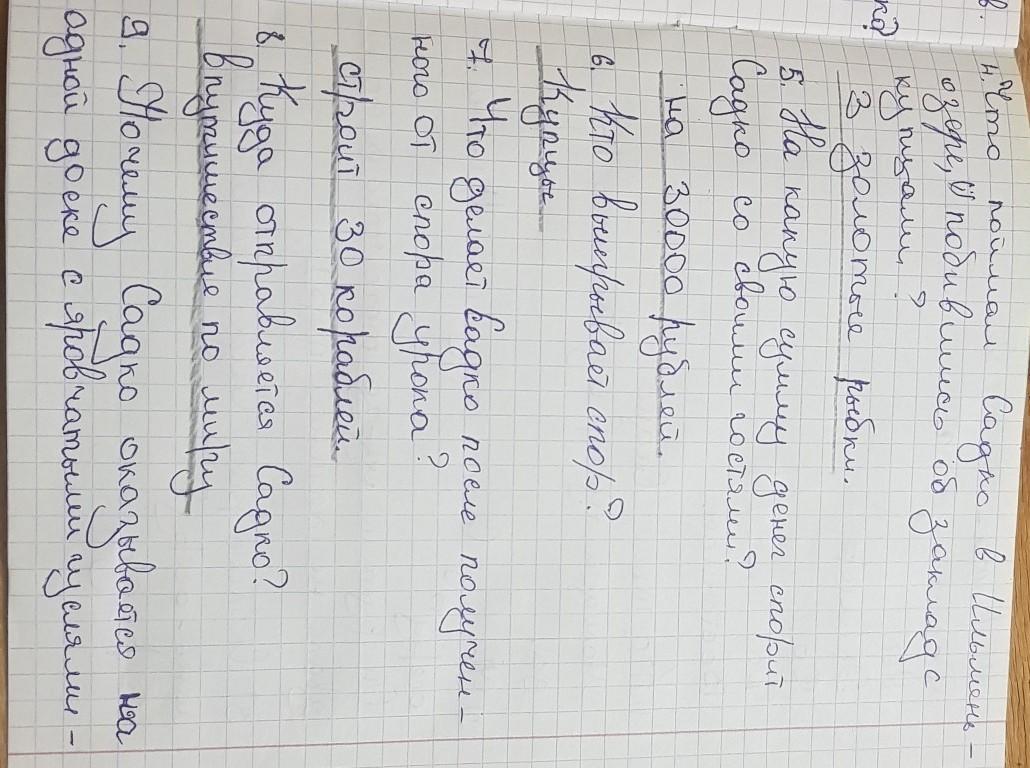 в.
ка?
н. Что поймал Садко в Ильмень-
озере, побившись об заклад с
купцами?
3 золотые рыбки.
5. На какую сумму денег спорит
Садко со своими гостями?
на 3000 рублей
6. Кто выигрывает спор?
Купцы
7. Что делает Садко после получен-
ного от спора урока?
строит 30 кораблей
8. Куда отправляется Садко?
в путишествие по миру
9. Почему Садко оказывается на
одной доске с яровчатыми гуслями-